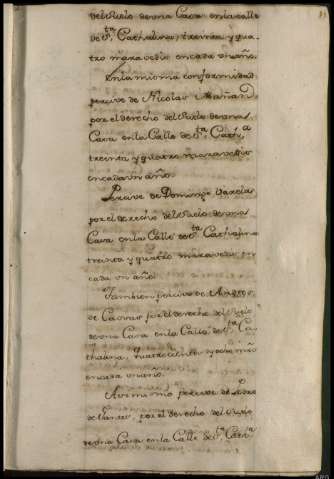 del Suelo de una Casa en la calle
de S.ta Cathalina, treinta y qua
tro maravedis en cada un año.
En la misma conformidad
percive de Nicolas
por el derecho del Suelo de una
Casa en la Calle de S.ta Cath.a
treinta y quatro maravedis
en cada un año.
Percive de Domingo Garcia
por el derecho del Suelo de una
Casa en la Calle de S.ta Cathalina
treinta y quatro maravedis en
cada un año.
Tambien percive de
de por el derecho del Suelo
de una Casa en la Calle de S.ta Ca
thalina, y ocho mrs
en cada un año.
Asimismo percive de
de por el derecho del Suelo
de una Casa en la Calle de S.ta Cath.a